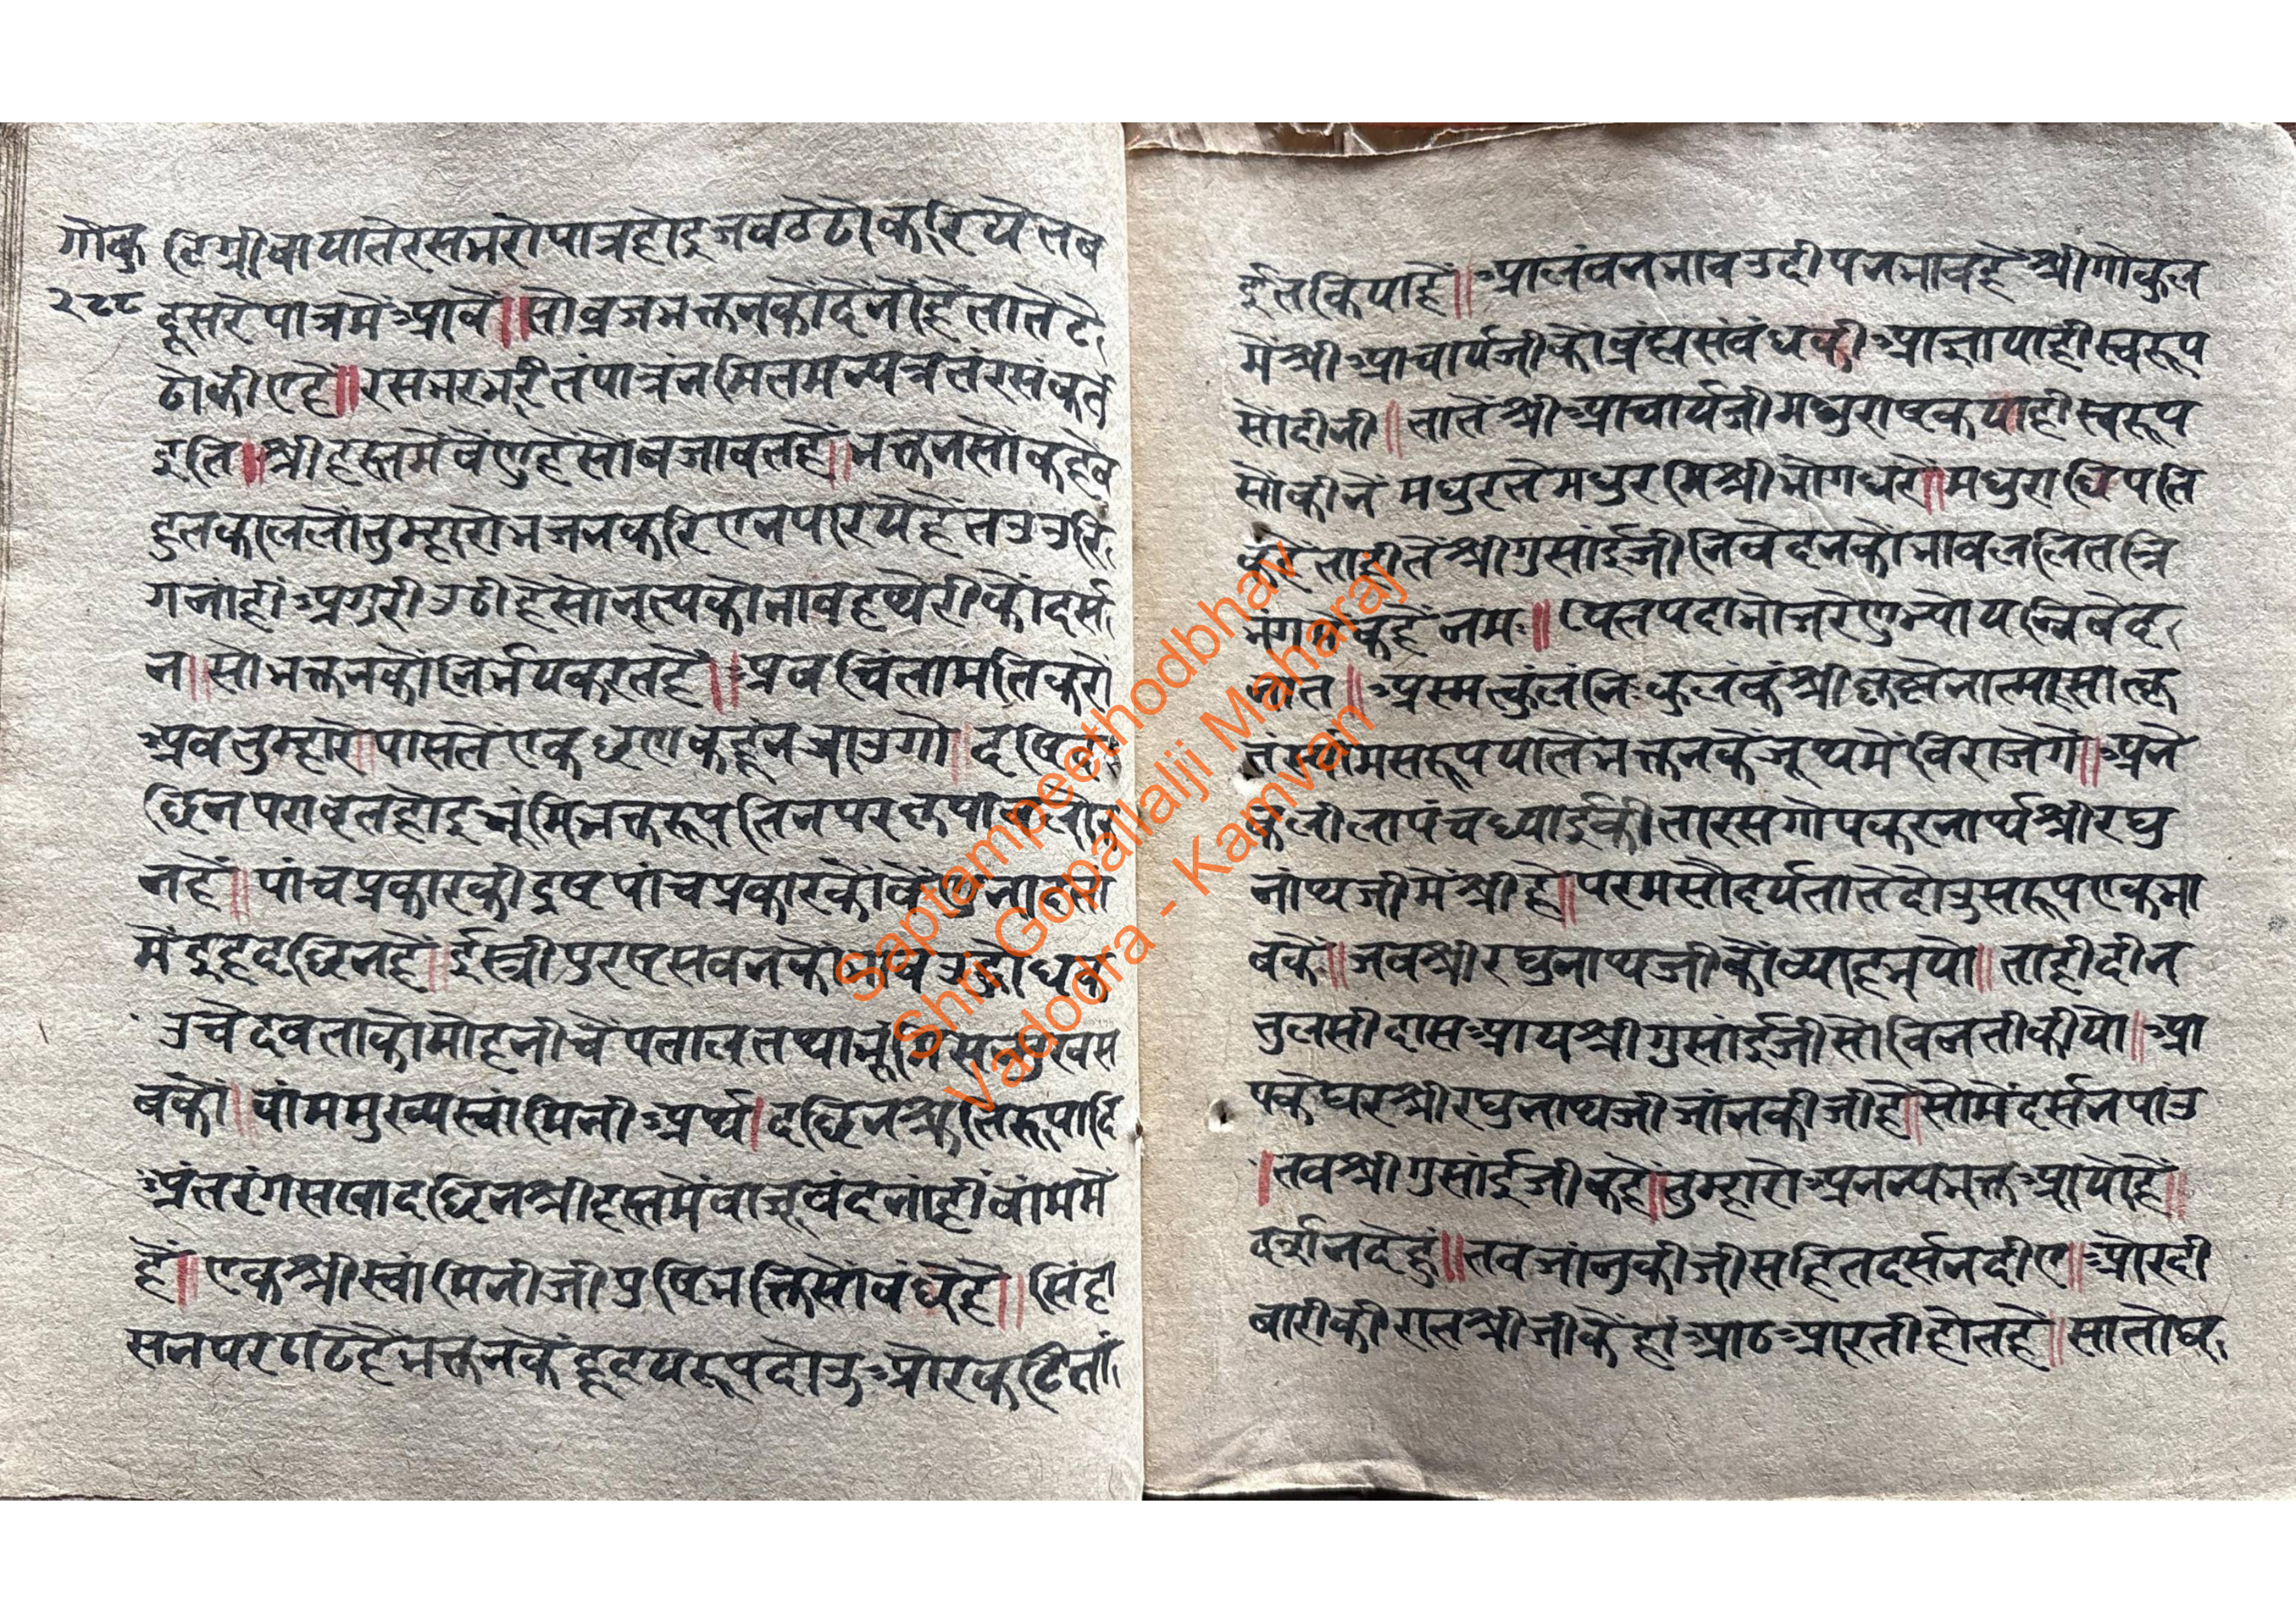 गोकु
२८८
लिग्रीवा यातेरसभरोपात्रहोइजबठेढोकरियेतब
दूसरेपात्रमेंआवें॥सोब्रजभक्तनकोंदेनोंहेंतातेंटे
ढोकीएहें॥रसभरभरीतंपात्रंनमितमन्यत्रतंरसंकुर्त
इति॥श्रीहस्तमेंवेंणुहेंसोबजावतहें॥भक्तनसोंकहेंब
हुतकाललोंतुम्हारोभजनकरिएनपारयेहेंतउउरि
गनांहीं अगुरीउठीहेंसोनृत्यकोभावहथेरीकोंदर्स
न॥सोभक्तनकोंनिर्भयकरतहें॥अबचिंतामतिकरों
अबतुम्हारे॥पासतेंएकछणकहूंनजाउगो॥
छिनपरावृतहोइभूमिभक्तरूपतिनपर
नहें॥पांचप्रकारकीइषपांचप्रकारकों
मेंइहदछिनहें॥ईस्त्रीपुरससबनकों
उचेदेवताकोंमोहनीचेंपतालतथाभूमि
बकों॥वांममुख्यस्वांमिनीअर्थ।दछिनश्रुतिरूपादि
अंतरंगसषादछिनश्रीहस्तमेंबाजूबंदनांहींवांममें
हें॥एकश्रीस्वांमिनीजीप्रषिभक्तिसोंबंधेहें॥सिंहा
सनपरठाढेहेंभक्तनकेंहृदयरूपदोउओरकटितां
ईतकियाहें॥आलंबनभावउदीपनभावहेंश्रीगोकुल
मेंश्रीआचार्यजीकोंब्रंह्मसंबंधकीआज्ञायाहीस्वरूप
सोंदीनी॥तातेंश्रीआचार्यजीमधुराष्टकयाहीस्वरूप
सोंकीनें मधुरतेमधुरमिश्रीभोगधरों॥मधुराधिपति
कहेंताहीतेंश्रीगुसांईजीनिवेदनकोंभावललितत्रि
भंगकोंकहेंनमः॥पितपदाभोजरेणुभ्योयन्निवेद
नात॥अस्मत्कुलंनिःकुलंकंश्रीकृष्णेनात्मासात्कृ
तंस्वामिसरूपयातेंभक्तनकेजूथमेंविराजेगें॥अने
कलीलापंचध्याईकीतारसगोपकरनार्थश्रीरघु
नांथजीमेंश्रीहें॥परमसौदर्यतातेंदोउसरूपएकभा
वकें॥जबश्रीरघुनाथजीकोंव्याहभयो॥ताहीदीन
तुलसीदासआयश्रीगुसांईजीसोंविनतीकीयो॥आ
पकेघरश्रीरघुनाथजीजांनकीजीहें॥सोमेंदर्सनपांउ
॥तबश्रीगुसांईजीकहें॥तुम्हारोअनन्यभक्तआयोहें॥
दर्शनदेहुं॥तबजांनुकीजीसहितदर्सनदीए॥ओरदी
वारीकीरातश्रीजीकेंहांआठआरतीहोतहें॥सातोघर
Saptampeethodbhav
Shri Gopallalji Maharaj
Vadodra - Kamvan